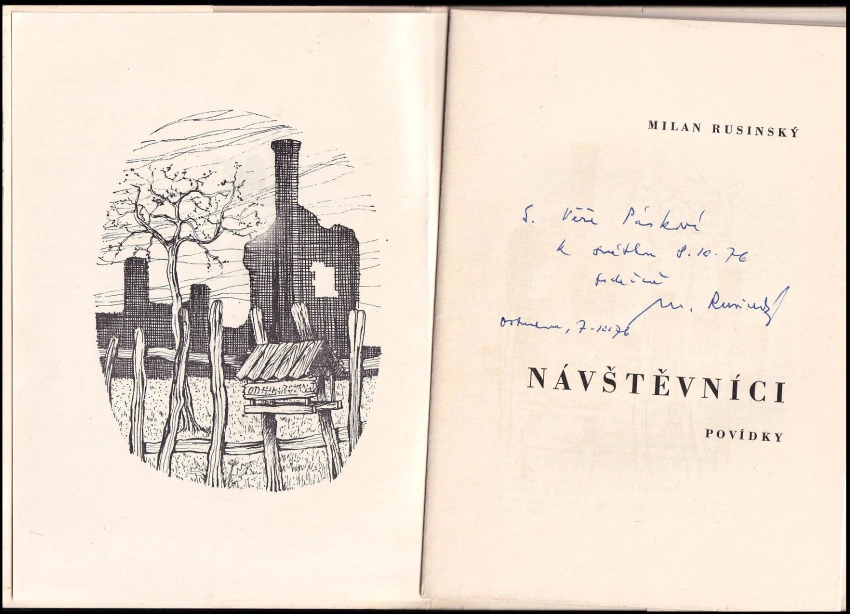 MILAN RUSINSKÝ
S. Věře Páskové
k svátku 8.10.76
srdečně
M. Rusinský
Ostrava, 7-10-76
NÁVŠTĚVNÍCI
POVÍDKY